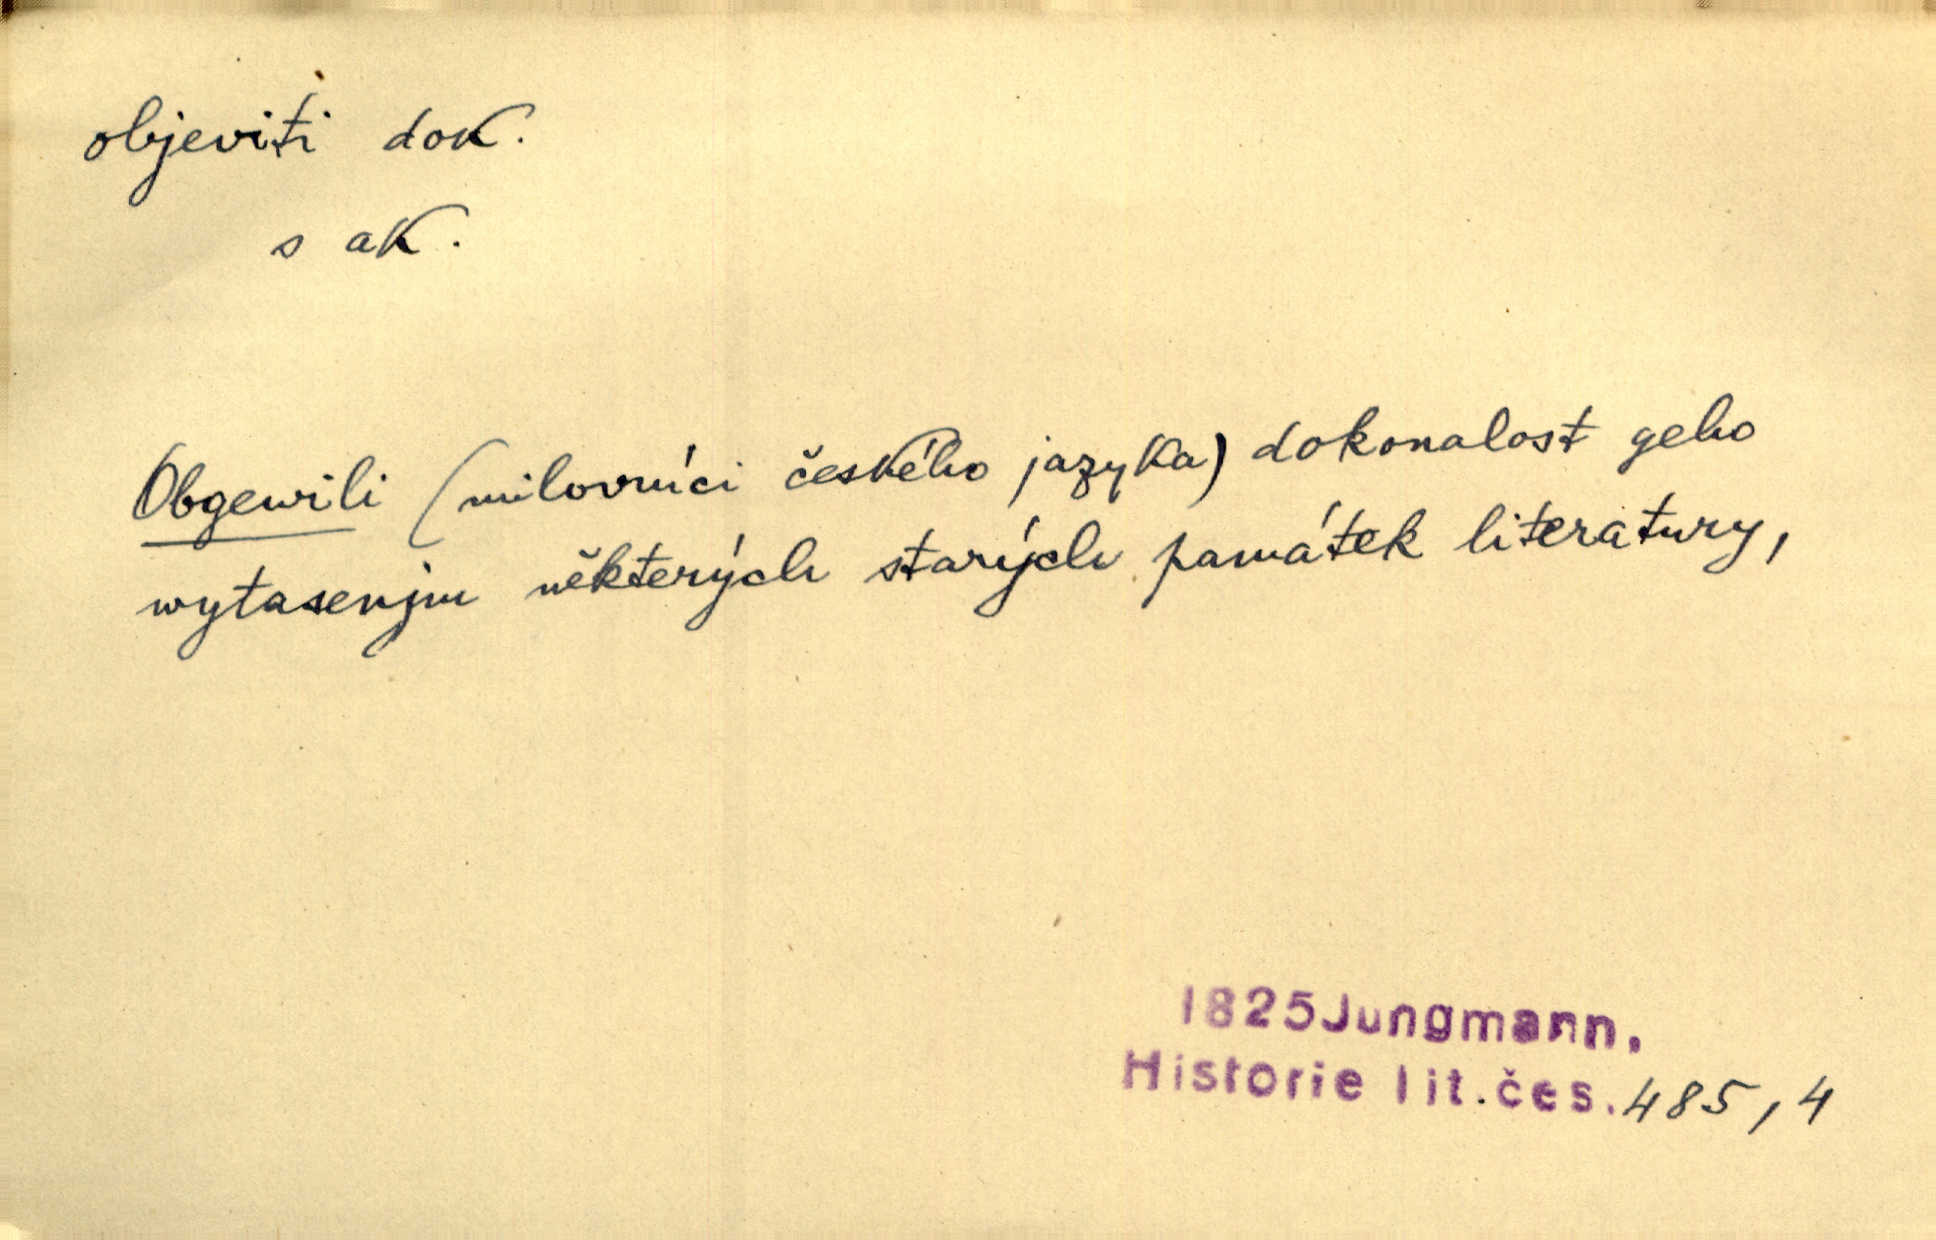 objeviti dok.
s ak.
Obgewili (milovníci českého jazyka) dokonalost geho
wytasenjm některých starých památek literatury,
1825 Jungmann,
Historie lit. čes. 485, 4